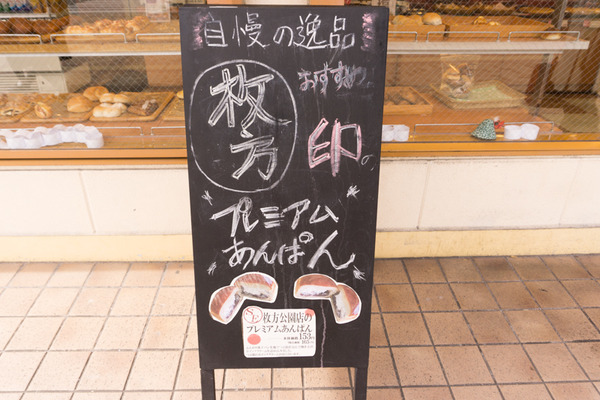 自慢の逸品
おすすめ
枚方
印の
プレミアム
あんぱん
枚方公園店の
プレミアムあんぱん
本体価格 153円